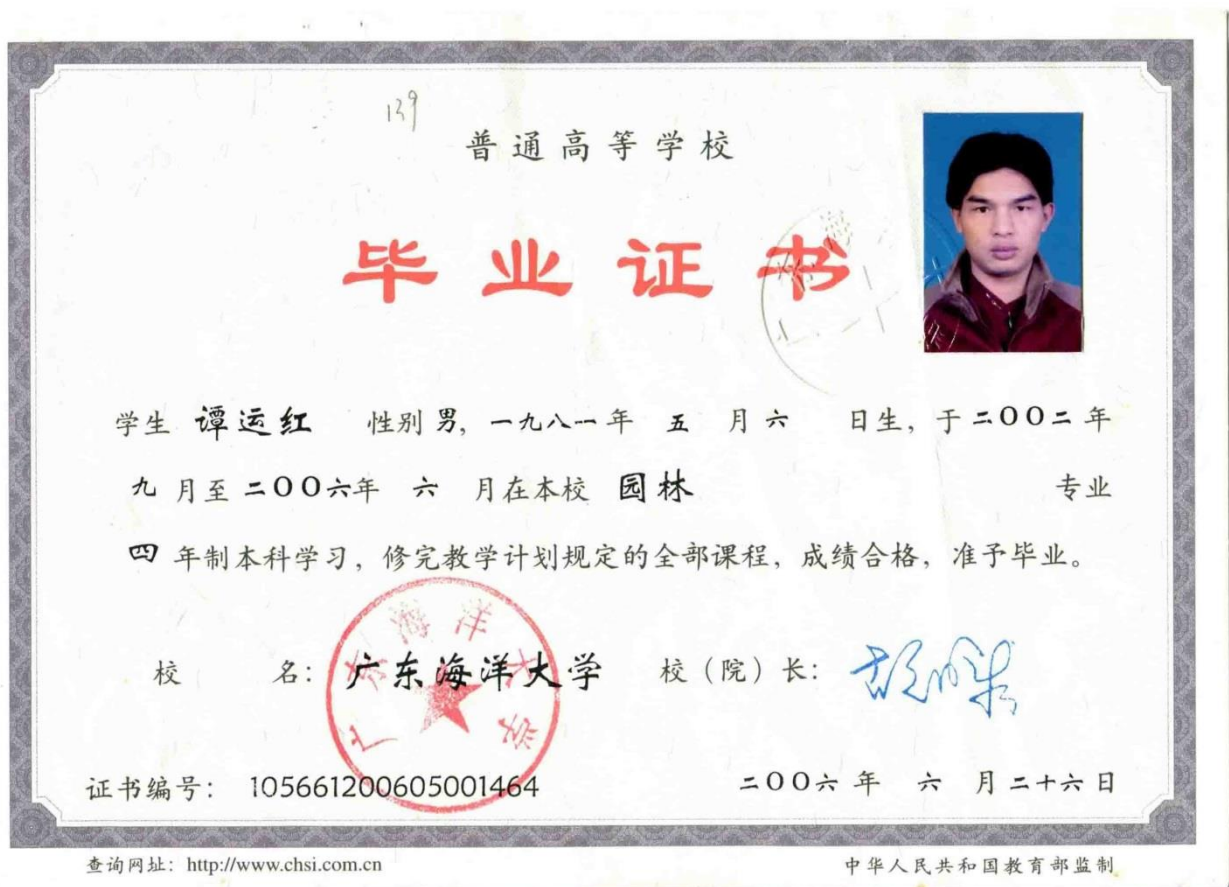 139
普通高等学校
毕业证书
学生 谭运红 性别 男, 一九八一年 五 月 六 日生, 于 二〇〇二 年
九 月至 二〇〇六年 六 月在本校 园林 专业
四 年制本科学习, 修完教学计划规定的全部课程, 成绩合格, 准予毕业。
广东海洋大学
校 名: 广东海洋大学 校(院)长:
证书编号: 105661200605001464 二〇〇六 年 六 月 二十六 日
查询网址: http://www.chsi.com.cn 中华人民共和国教育部监制